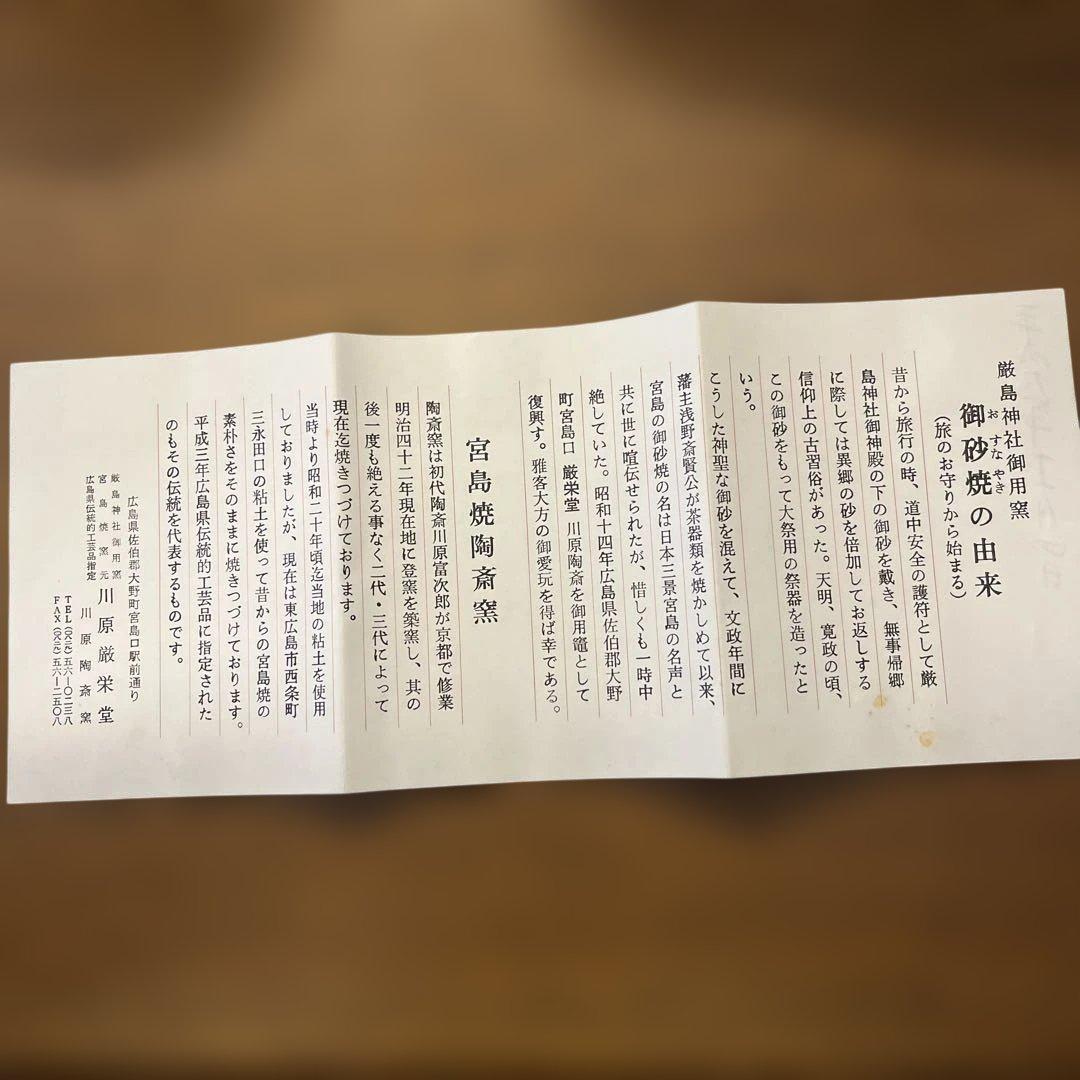 厳島神社御用窯
御砂焼の由来
お すな やき
(旅のお守りから始まる)
昔から旅行の時、道中安全の護符として厳
島神社御神殿の下の御砂を戴き、無事帰郷
に際しては異郷の砂を倍加してお返しする
信仰上の古習俗があった。天明、寛政の頃、
この御砂をもって大祭用の祭器を造ったと
いう。
こうした神聖な御砂を混えて、文政年間に
藩主浅野斎賢公が茶器類を焼かしめて以来、
宮島の御砂焼の名は日本三景宮島の名声と
共に世に喧伝せられたが、惜しくも一時中
絶していた。昭和十四年広島県佐伯郡大野
町宮島口 厳栄堂 川原陶斎を御用竈として
復興す。雅客大方の御愛玩を得ば幸である。
宮島焼陶斎窯
陶斎窯は初代陶斎川原富次郎が京都で修業
明治四十二年現在地に登窯を築窯し、其の
後一度も絶える事なく二代・三代によって
現在迄焼きつづけております。
当時より昭和二十年頃迄当地の粘土を使用
しておりましたが、現在は東広島市西条町
三永田口の粘土を使って昔からの宮島焼の
素朴さをそのままに焼きつづけております。
平成三年広島県伝統的工芸品に指定された
のもその伝統を代表するものです。
広島県佐伯郡大野町宮島口駅前通り
厳島神社御用窯
宮島焼窯元 川原厳栄堂
広島県伝統的工芸品指定 川原陶斎窯
TEL(〇八二九)五六―〇二三八
FAX(〇八二九)五六―二五〇八